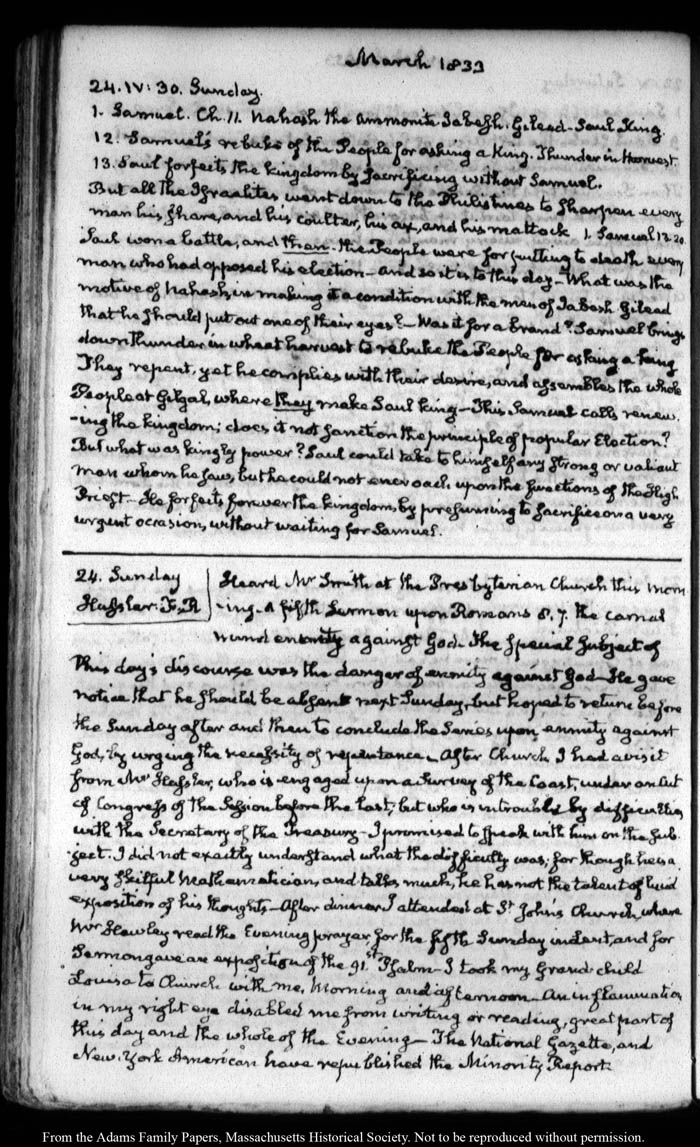 March 1833
24. IV: 30. Sunday.
1. Samuel. Ch. 11. Nahash the Ammonite Jabesh. Gilead - Saul King.
12. Samuel's rebuke of the People for asking a King. Thunder in Harvest.
13. Saul forfeits the kingdom by sacrificing without Samuel.
But all the Israelites went down to the Philistines to sharpen every
man his share, and his coulter, his ax, and his mattock 1. Samuel 13.20.
Saul won a battle, and than the People were for putting to death every
man who had opposed his election - and so it is to this day - What was the
motive of Nahash, in making it a condition with the men of Jabesh Gilead
that he should put out one of their eyes? - Was it for a brand? Samuel brings
down thunder in wheat harvest to rebuke the People for asking a king
They repent, yet he complies with their desire, and assembles the whole
People at Gilgal, where they make Saul king - This Samuel calls renew-
-ing the kingdom; does it not sanction the principle of popular Election?
But what was kingly power? Saul could take to himself any strong or valiant
man whom he saw, but he could not encroach upon the functions of the High
Priest - He forfeits forever the kingdom, by presuming to sacrifice on a very
urgent occasion, without waiting for Samuel.
24. Sunday
Hassler. F. R
Heard Mr Smith at the Presbyterian Church this morn
-ing. A fifth Sermon upon Romans 8. 7. the carnal
mind enmity against God - The special subject of
this day's discourse was the danger of enmity against God - He gave
notice that he should be absent next Sunday, but hoped to return before
the Sunday after and then to conclude the Series upon enmity against
God, by urging the necessity of repentance - After Church I had a visit
from Mr Hassler, who is engaged upon a Survey of the Coast, under an Act
of Congress of the Session before the last; but who is in trouble by difficulties
with the Secretary of the Treasury - I promised to speak with him on the sub-
ject. I did not exactly understand what the difficulty was; for though he is a
very skilful Mathematician, and talks much, he has not the talent of lucid
exposition of his thoughts - After dinner I attended at St John's Church, where
Mr Hawley read the Evening prayer for the fifth Sunday in Lent, and for
Sermon gave an exposition of the 91.st Psalm - I took my Grand-child
Louisa to Church with me, Morning and afternoon - An inflammation
in my right eye disabled me from writing or reading, great part of
this day and the whole of the Evening - The National Gazette, and
New-York American have republished the Minority Report.
From the Adams Family Papers, Massachusetts Historical Society. Not to be reproduced without permission.